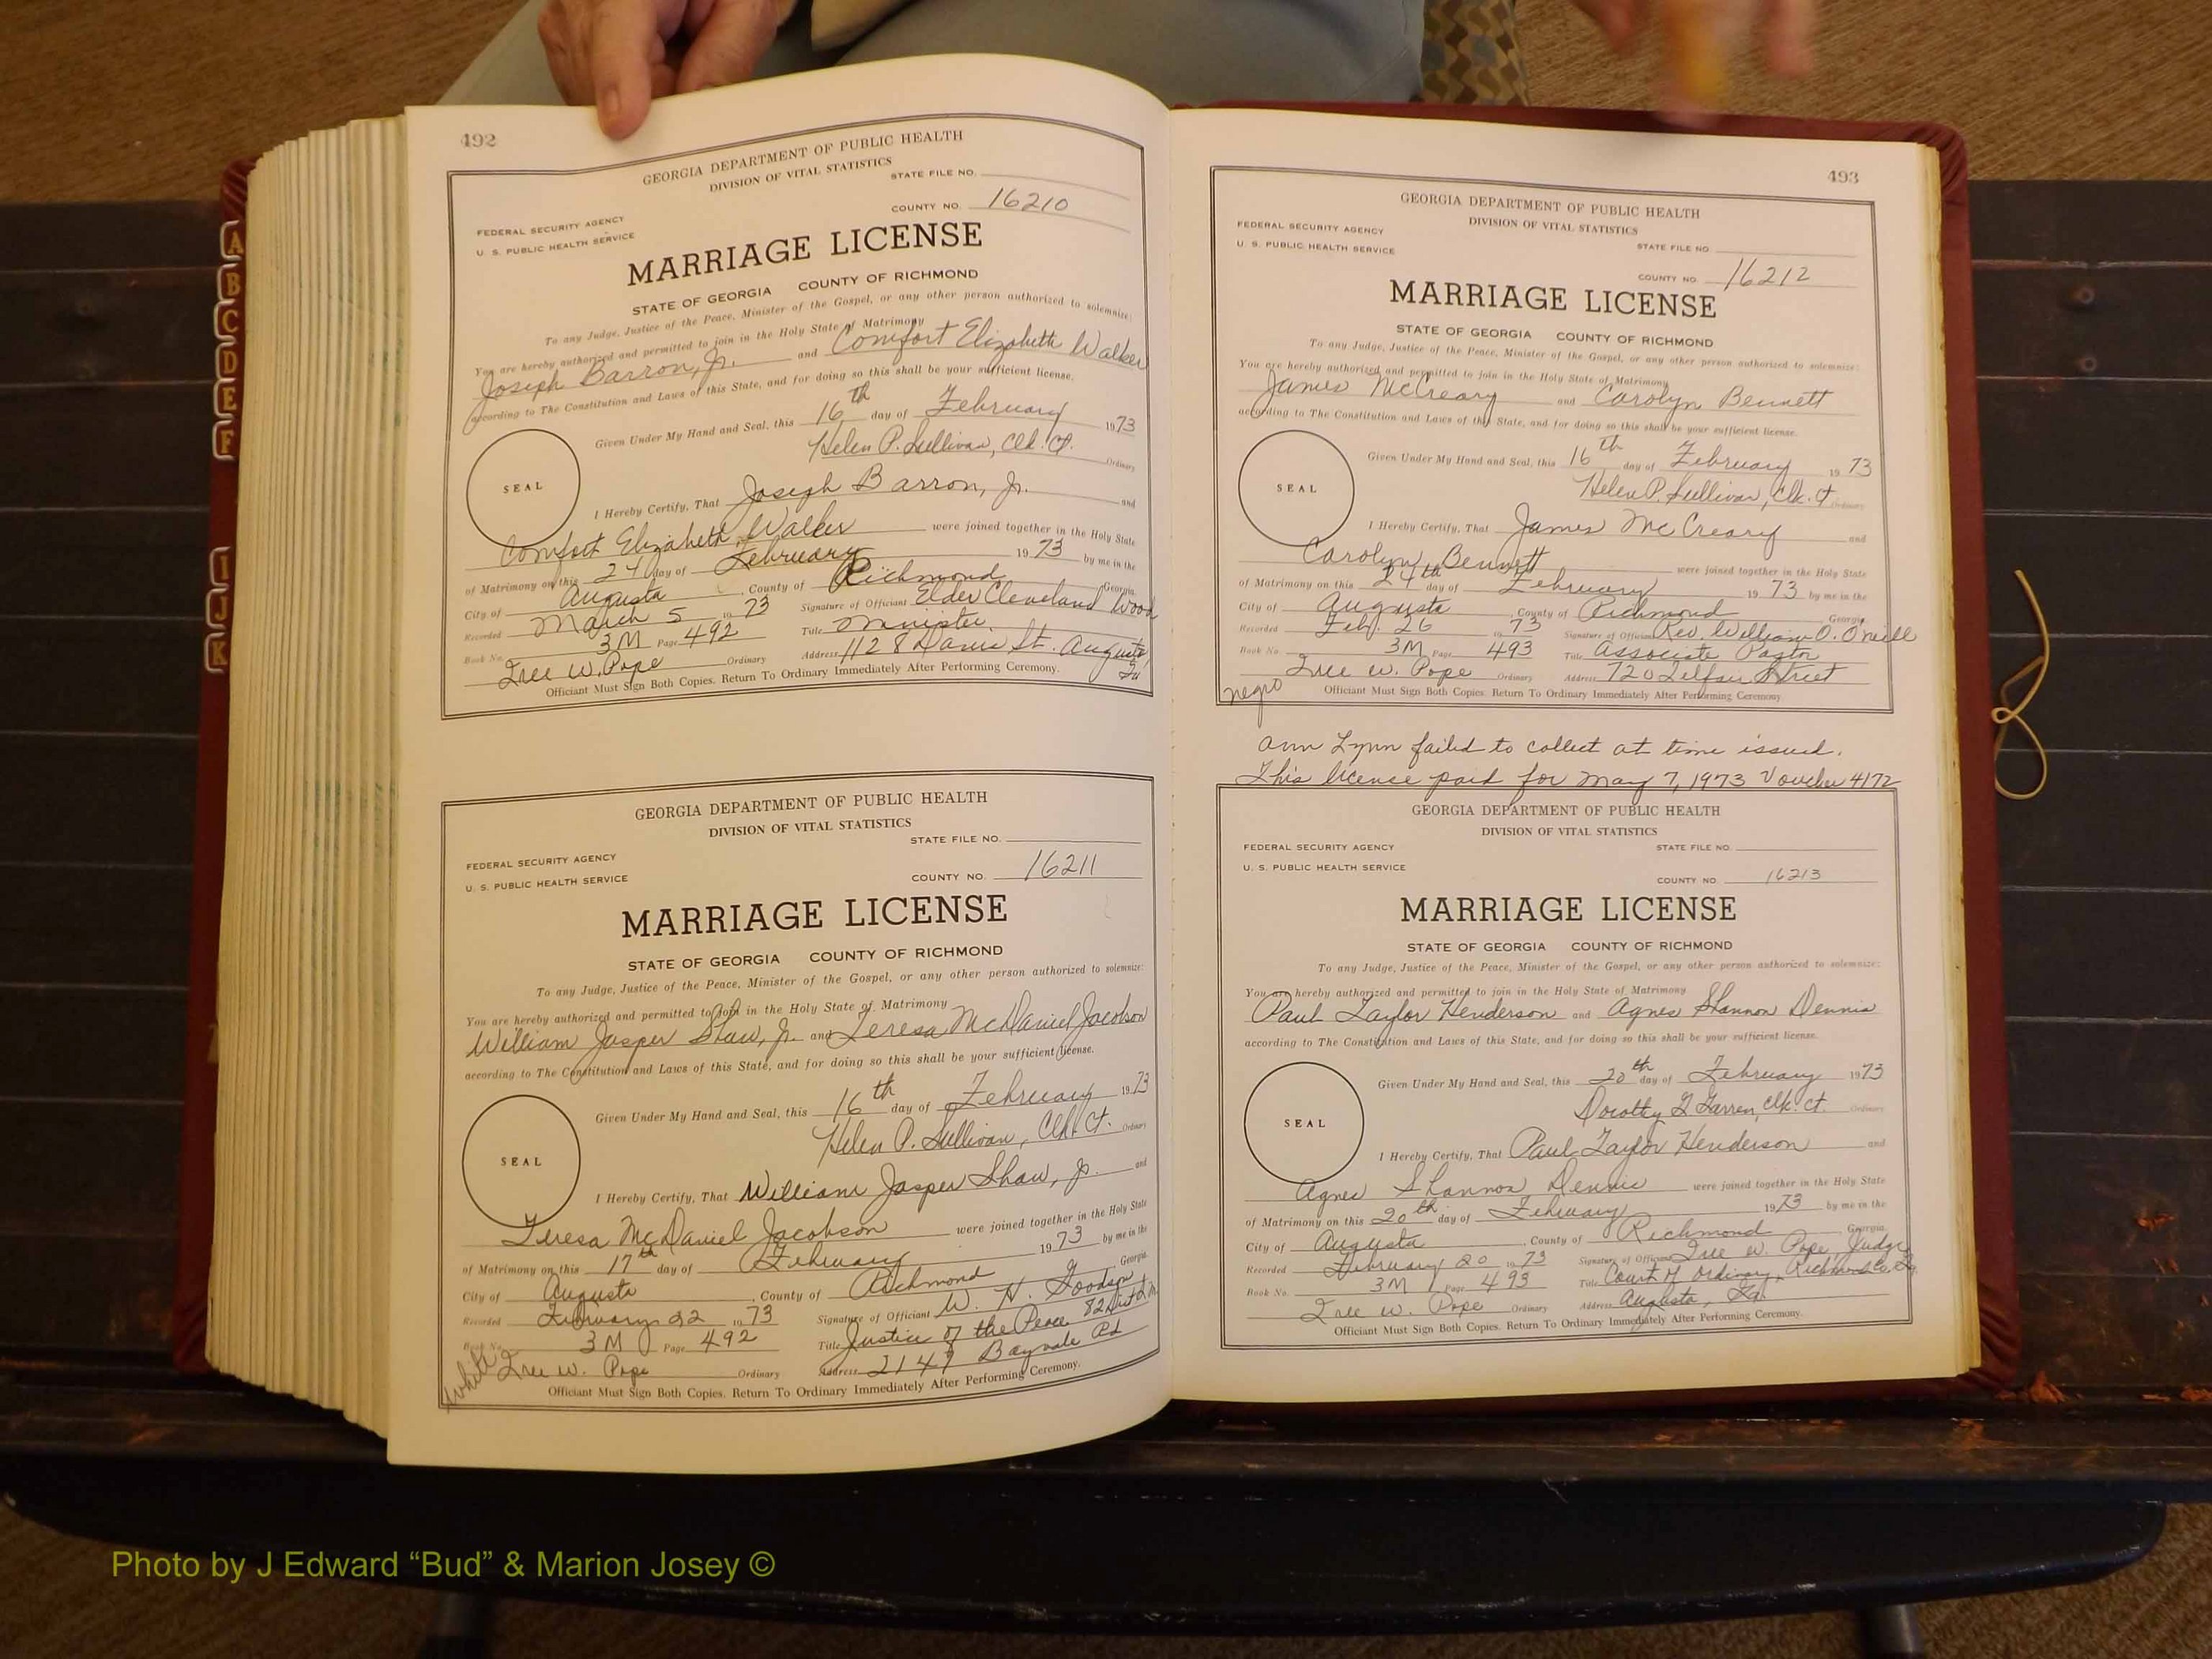 492
GEORGIA DEPARTMENT OF PUBLIC HEALTH
DIVISION OF VITAL STATISTICS
STATE FILE NO.
FEDERAL SECURITY AGENCY
U. S. PUBLIC HEALTH SERVICE
COUNTY NO. 16210
MARRIAGE LICENSE
STATE OF GEORGIA COUNTY OF RICHMOND
To any Judge, Justice of the Peace, Minister of the Gospel, or any other person authorized to solemnize:
You are hereby authorized and permitted to join in the Holy State of Matrimony
Joseph Barron, Jr. and Comfort Elizabeth Walker
according to The Constitution and Laws of this State, and for doing so this shall be your sufficient license.
Given Under My Hand and Seal, this 16th day of February 1973
Helen P. Sullivan, Clk. Ct. Ordinary
SEAL
I Hereby Certify, That Joseph Barron, Jr. and
Comfort Elizabeth Walker were joined together in the Holy State
of Matrimony on this 24 day of February 1973 by me in the
City of Augusta, County of Richmond Georgia.
Recorded March 5 1973 Signature of Officiant Elder Cleveland Wood
Book No. 3M Page 492 Title Minister
Iree W. Pope Ordinary Address 1128 Davis St. Augusta, Ga
Officiant Must Sign Both Copies. Return To Ordinary Immediately After Performing Ceremony.
GEORGIA DEPARTMENT OF PUBLIC HEALTH
DIVISION OF VITAL STATISTICS
STATE FILE NO.
FEDERAL SECURITY AGENCY
U. S. PUBLIC HEALTH SERVICE
COUNTY NO. 16211
MARRIAGE LICENSE
STATE OF GEORGIA COUNTY OF RICHMOND
To any Judge, Justice of the Peace, Minister of the Gospel, or any other person authorized to solemnize:
You are hereby authorized and permitted to join in the Holy State of Matrimony
William Jasper Shaw, Jr. and Teresa McDaniel Jacobson
according to The Constitution and Laws of this State, and for doing so this shall be your sufficient license.
Given Under My Hand and Seal, this 16th day of February 1973
Helen P. Sullivan, Clk. Ct. Ordinary
SEAL
I Hereby Certify, That William Jasper Shaw, Jr. and
Teresa McDaniel Jacobson were joined together in the Holy State
of Matrimony on this 17th day of February 1973 by me in the
City of Augusta, County of Richmond Georgia.
Recorded February 22 1973 Signature of Officiant W. H. Goodson
Book No. 3M Page 492 Title Justice of the Peace 82 Dist
white Iree W. Pope Ordinary Address 2147 Bayvale Rd
Officiant Must Sign Both Copies. Return To Ordinary Immediately After Performing Ceremony.
493
GEORGIA DEPARTMENT OF PUBLIC HEALTH
DIVISION OF VITAL STATISTICS
FEDERAL SECURITY AGENCY
U. S. PUBLIC HEALTH SERVICE
STATE FILE NO.
COUNTY NO. 16212
MARRIAGE LICENSE
STATE OF GEORGIA COUNTY OF RICHMOND
To any Judge, Justice of the Peace, Minister of the Gospel, or any other person authorized to solemnize:
You are hereby authorized and permitted to join in the Holy State of Matrimony
James McCreary and Carolyn Bennett
according to The Constitution and Laws of this State, and for doing so this shall be your sufficient license.
Given Under My Hand and Seal, this 16th day of February 1973
Helen P. Sullivan, Clk. Ct. Ordinary
SEAL
I Hereby Certify, That James McCreary and
Carolyn Bennett were joined together in the Holy State
of Matrimony on this 24th day of February 1973 by me in the
City of Augusta, County of Richmond, Georgia
Recorded Feb. 26 1973 Signature of Officiant Rev. William O. O'Neill
Book No. 3M Page 493 Title Associate Pastor
Iree W. Pope Ordinary Address 720 Telfair Street
negro Officiant Must Sign Both Copies. Return To Ordinary Immediately After Performing Ceremony.
Ann Lynn failed to collect at time issued.
This licence paid for May 7, 1973 Voucher 4172
GEORGIA DEPARTMENT OF PUBLIC HEALTH
DIVISION OF VITAL STATISTICS
FEDERAL SECURITY AGENCY
STATE FILE NO.
U. S. PUBLIC HEALTH SERVICE
COUNTY NO. 16213
MARRIAGE LICENSE
STATE OF GEORGIA COUNTY OF RICHMOND
To any Judge, Justice of the Peace, Minister of the Gospel, or any other person authorized to solemnize:
You are hereby authorized and permitted to join in the Holy State of Matrimony
Paul Taylor Henderson and Agnes Shannon Dennis
according to The Constitution and Laws of this State, and for doing so this shall be your sufficient license.
Given Under My Hand and Seal, this 20th day of February 1973
Dorothy G. Garren, Clk. Ct. Ordinary
SEAL
I Hereby Certify, That Paul Taylor Henderson and
Agnes Shannon Dennis were joined together in the Holy State
of Matrimony on this 20th day of February 1973 by me in the
City of Augusta, County of Richmond Georgia.
Recorded February 20 1973 Signature of Officiant Iree W. Pope, Judge
Book No. 3M Page 493 Title Court of Ordinary, Richmond Co. Ga
Iree W. Pope Ordinary Address Augusta, Ga.
Officiant Must Sign Both Copies. Return To Ordinary Immediately After Performing Ceremony.
A
B
C
D
E
F
I
J
K
Photo by J Edward “Bud” & Marion Josey ©